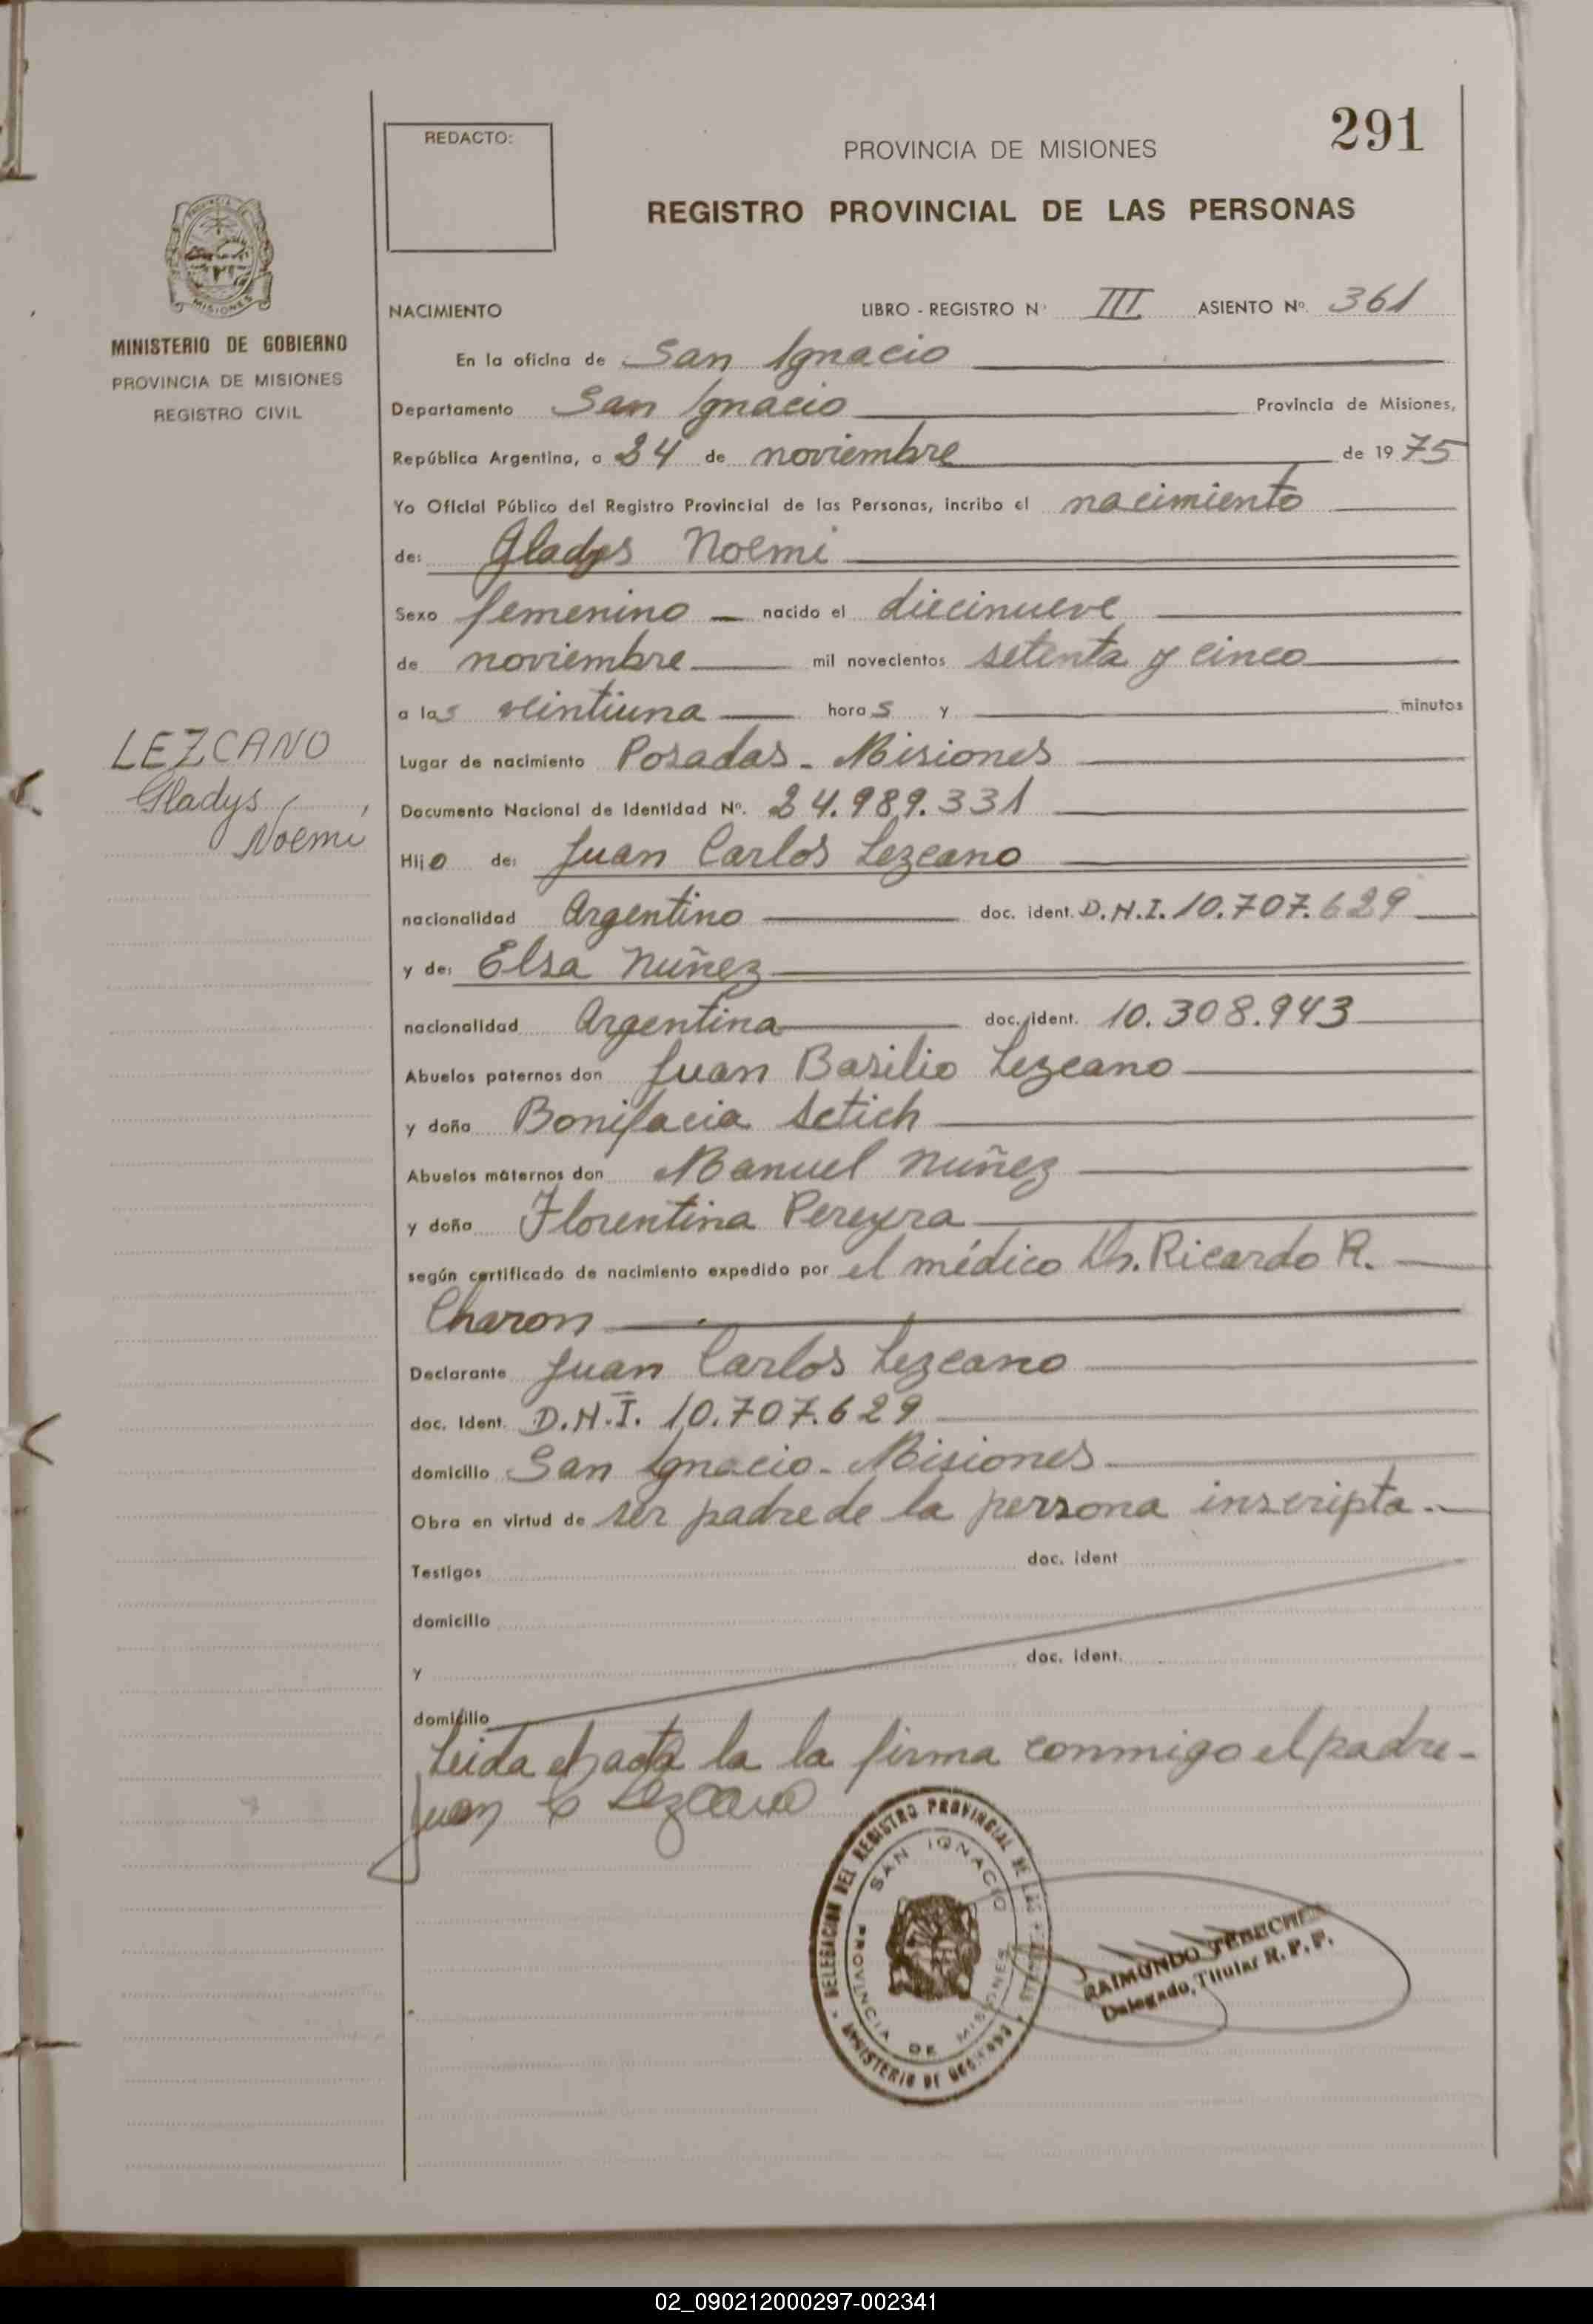 291
REDACTO:
PROVINCIA DE MISIONES
REGISTRO PROVINCIAL DE LAS PERSONAS
MISIONES
MINISTERIO DE GOBIERNO
PROVINCIA DE MISIONES
REGISTRO CIVIL
NACIMIENTO LIBRO - REGISTRO Nº III ASIENTO Nº. 361
En la oficina de San Ignacio
Departamento San Ignacio Provincia de Misiones,
República Argentina, a 24 de noviembre de 1975
Yo Oficial Público del Registro Provincial de las Personas, incribo el nacimiento
de: Gladys Noemi
Sexo femenino — nacido el diecinueve
de noviembre mil novecientos setenta y cinco
a las veintiuna horas y minutos
LEZCANO
Gladys
Noemi
Lugar de nacimiento Posadas - Misiones
Documento Nacional de Identidad Nº. 24.989.331
Hijo de: Juan Carlos Lezcano
nacionalidad Argentino doc. ident. D.N.I. 10.707.629
y de: Elsa Nuñez
nacionalidad Argentina doc. ident. 10.308.943
Abuelos paternos don Juan Basilio Lezcano
y doña Bonifacia Setich
Abuelos maternos don Manuel Nuñez
y doña Florentina Pereyra
según certificado de nacimiento expedido por el médico Dr. Ricardo R.
Charon
Declarante Juan Carlos Lezcano
doc. Ident. D.N.I. 10.707.629
domicilio San Ignacio - Misiones
Obra en virtud de ser padre de la persona inscripta.-
Testigos doc. ident
domicilio
y doc. ident.
domicilio
Leida el acta la la firma conmigo el padre-
Juan C Lezcano
DELEGACION DEL REGISTRO PROVINCIAL DE LAS
SAN IGNACIO
PROVINCIA DE MISIONES
MINISTERIO DE GOBIERNO
RAIMUNDO
Delegado Titular R. P. P.
02_090212000297-002341